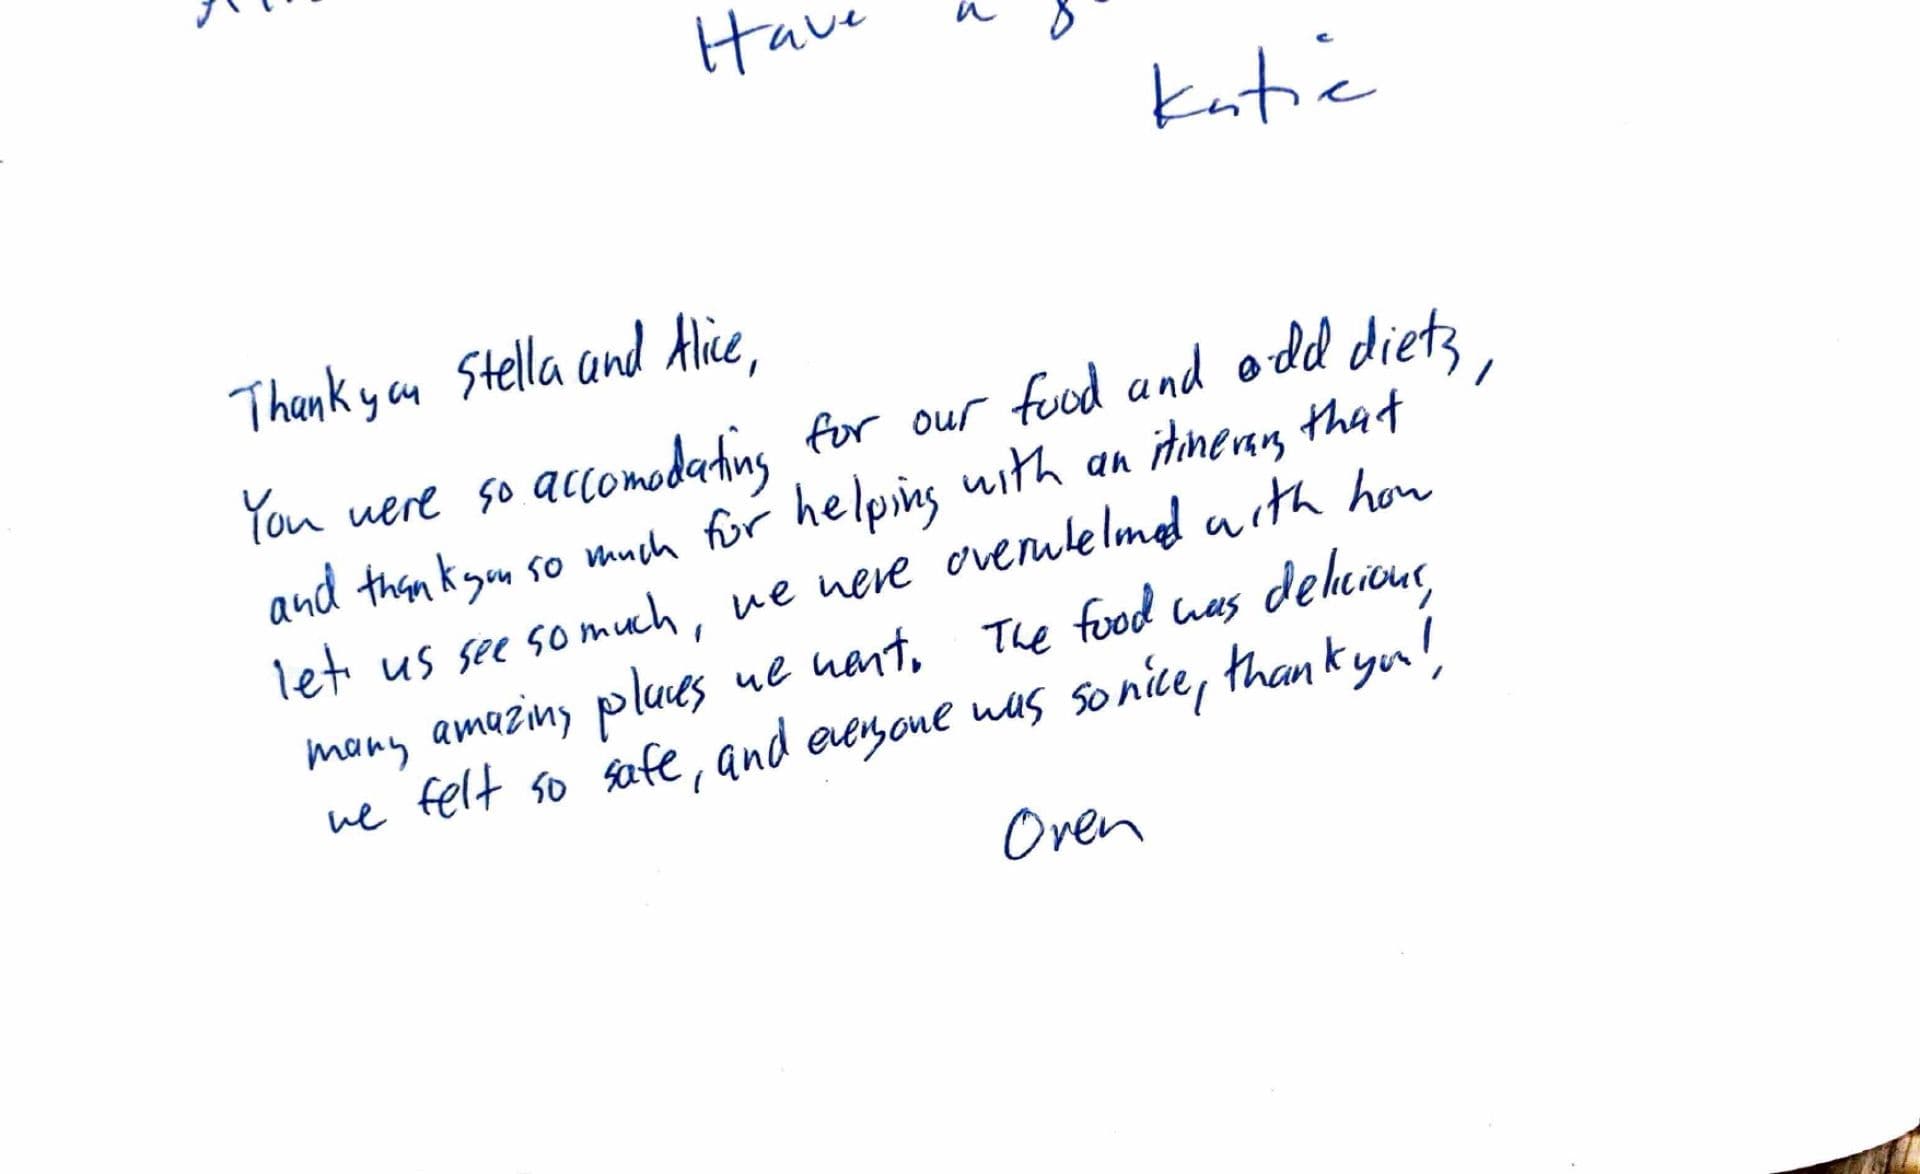 Have a
Katie
Thank you Stella and Alice,
You were so accomodating for our food and odd diets,
and thank you so much for helping with an itinerary that
let us see so much, we were overwhelmed with how
many amazing places we went. The food was delicious,
we felt so safe, and everyone was so nice, thank you!,
Oren